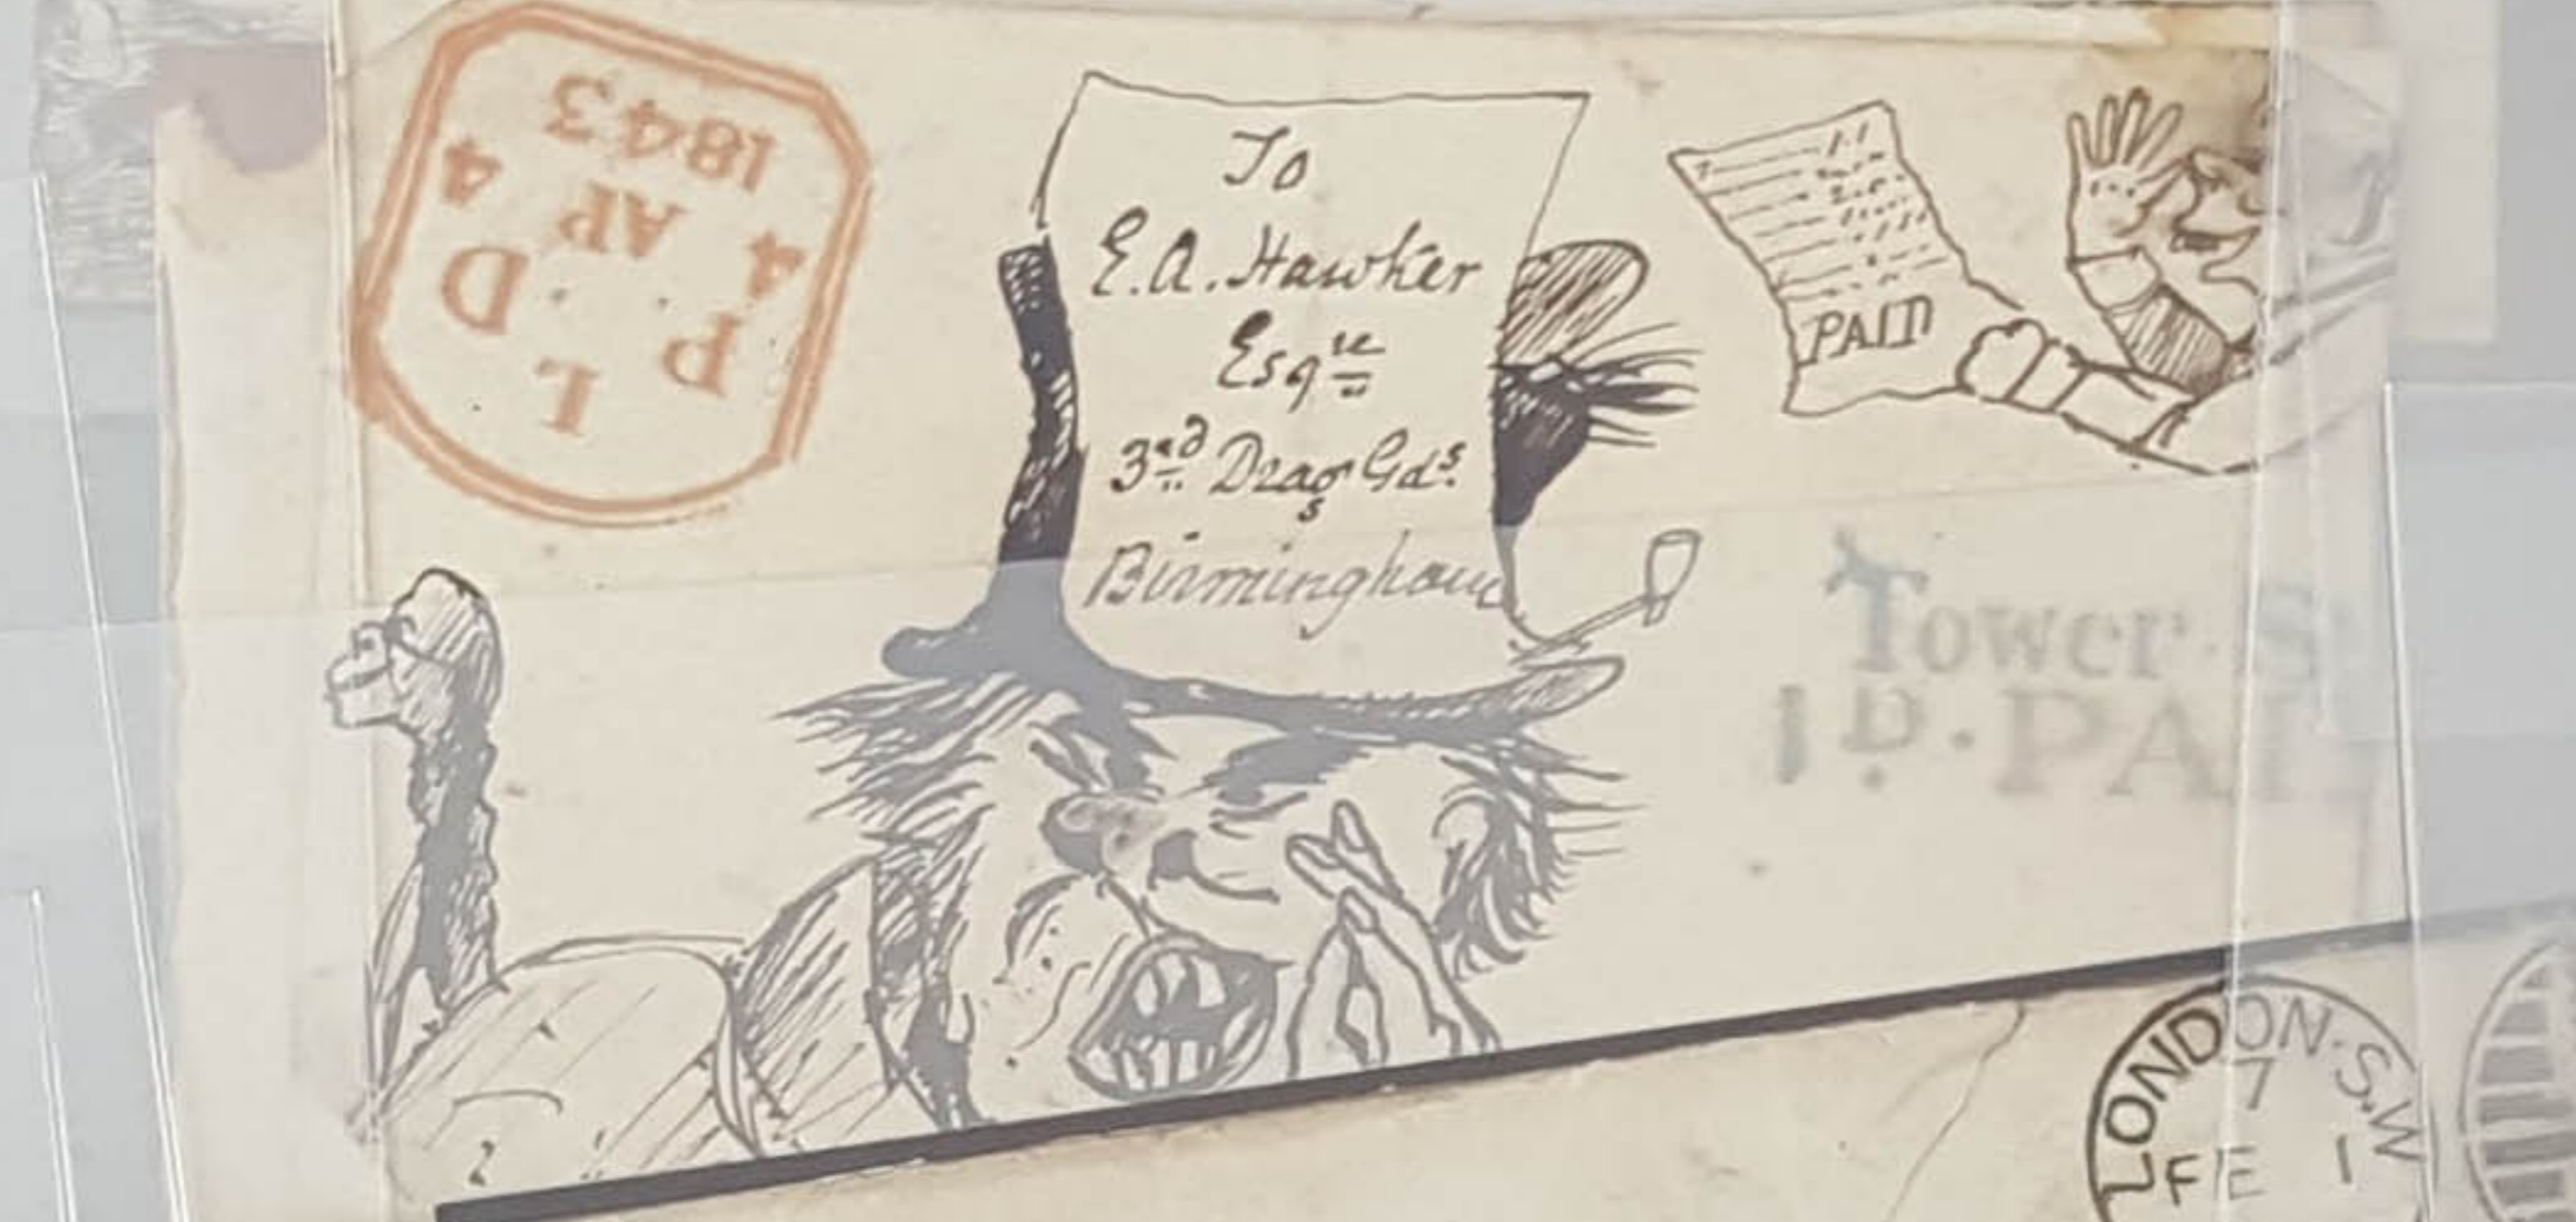 L
P. .D
4 AP 4
1843
To
E. A. Hawker
Esqre
3rd Drag Gds
s
Birmingham
PAID
Tower S
1D.PAI
LONDON·S.W
7
FE 1